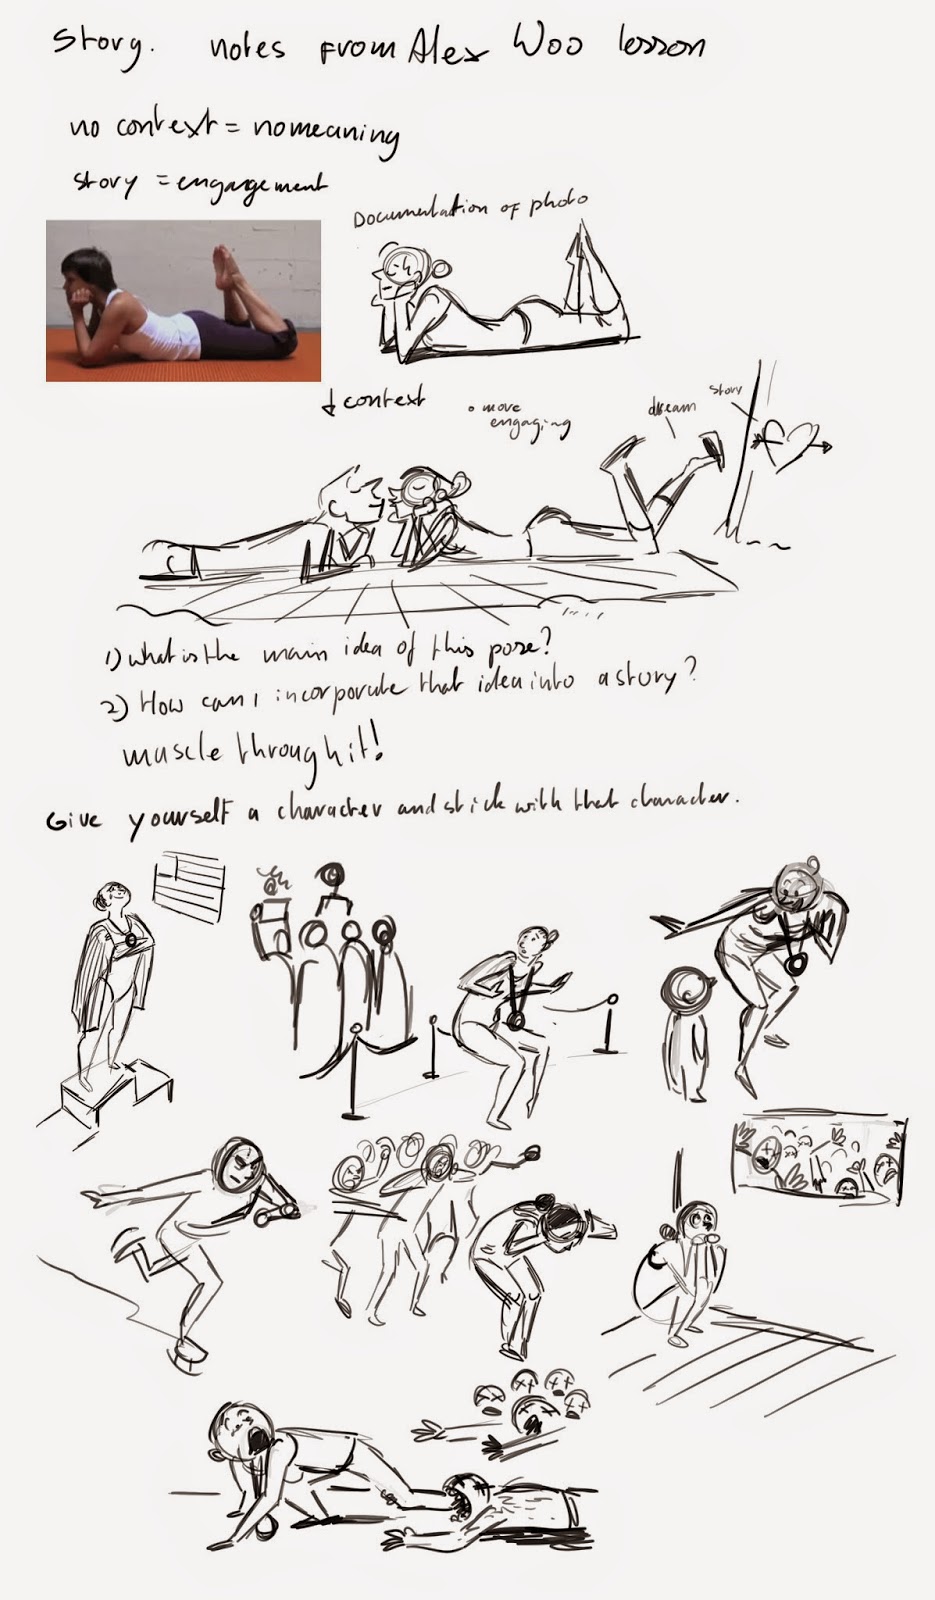 Story. notes from Alex Woo lesson
no context = no meaning
story = engagement
Documentation of photo
↓ context
• more
engaging
dream
story
1) what is the main idea of this pose?
2) How can I incorporate that idea into a story?
muscle through it!
Give yourself a character and stick with that character.